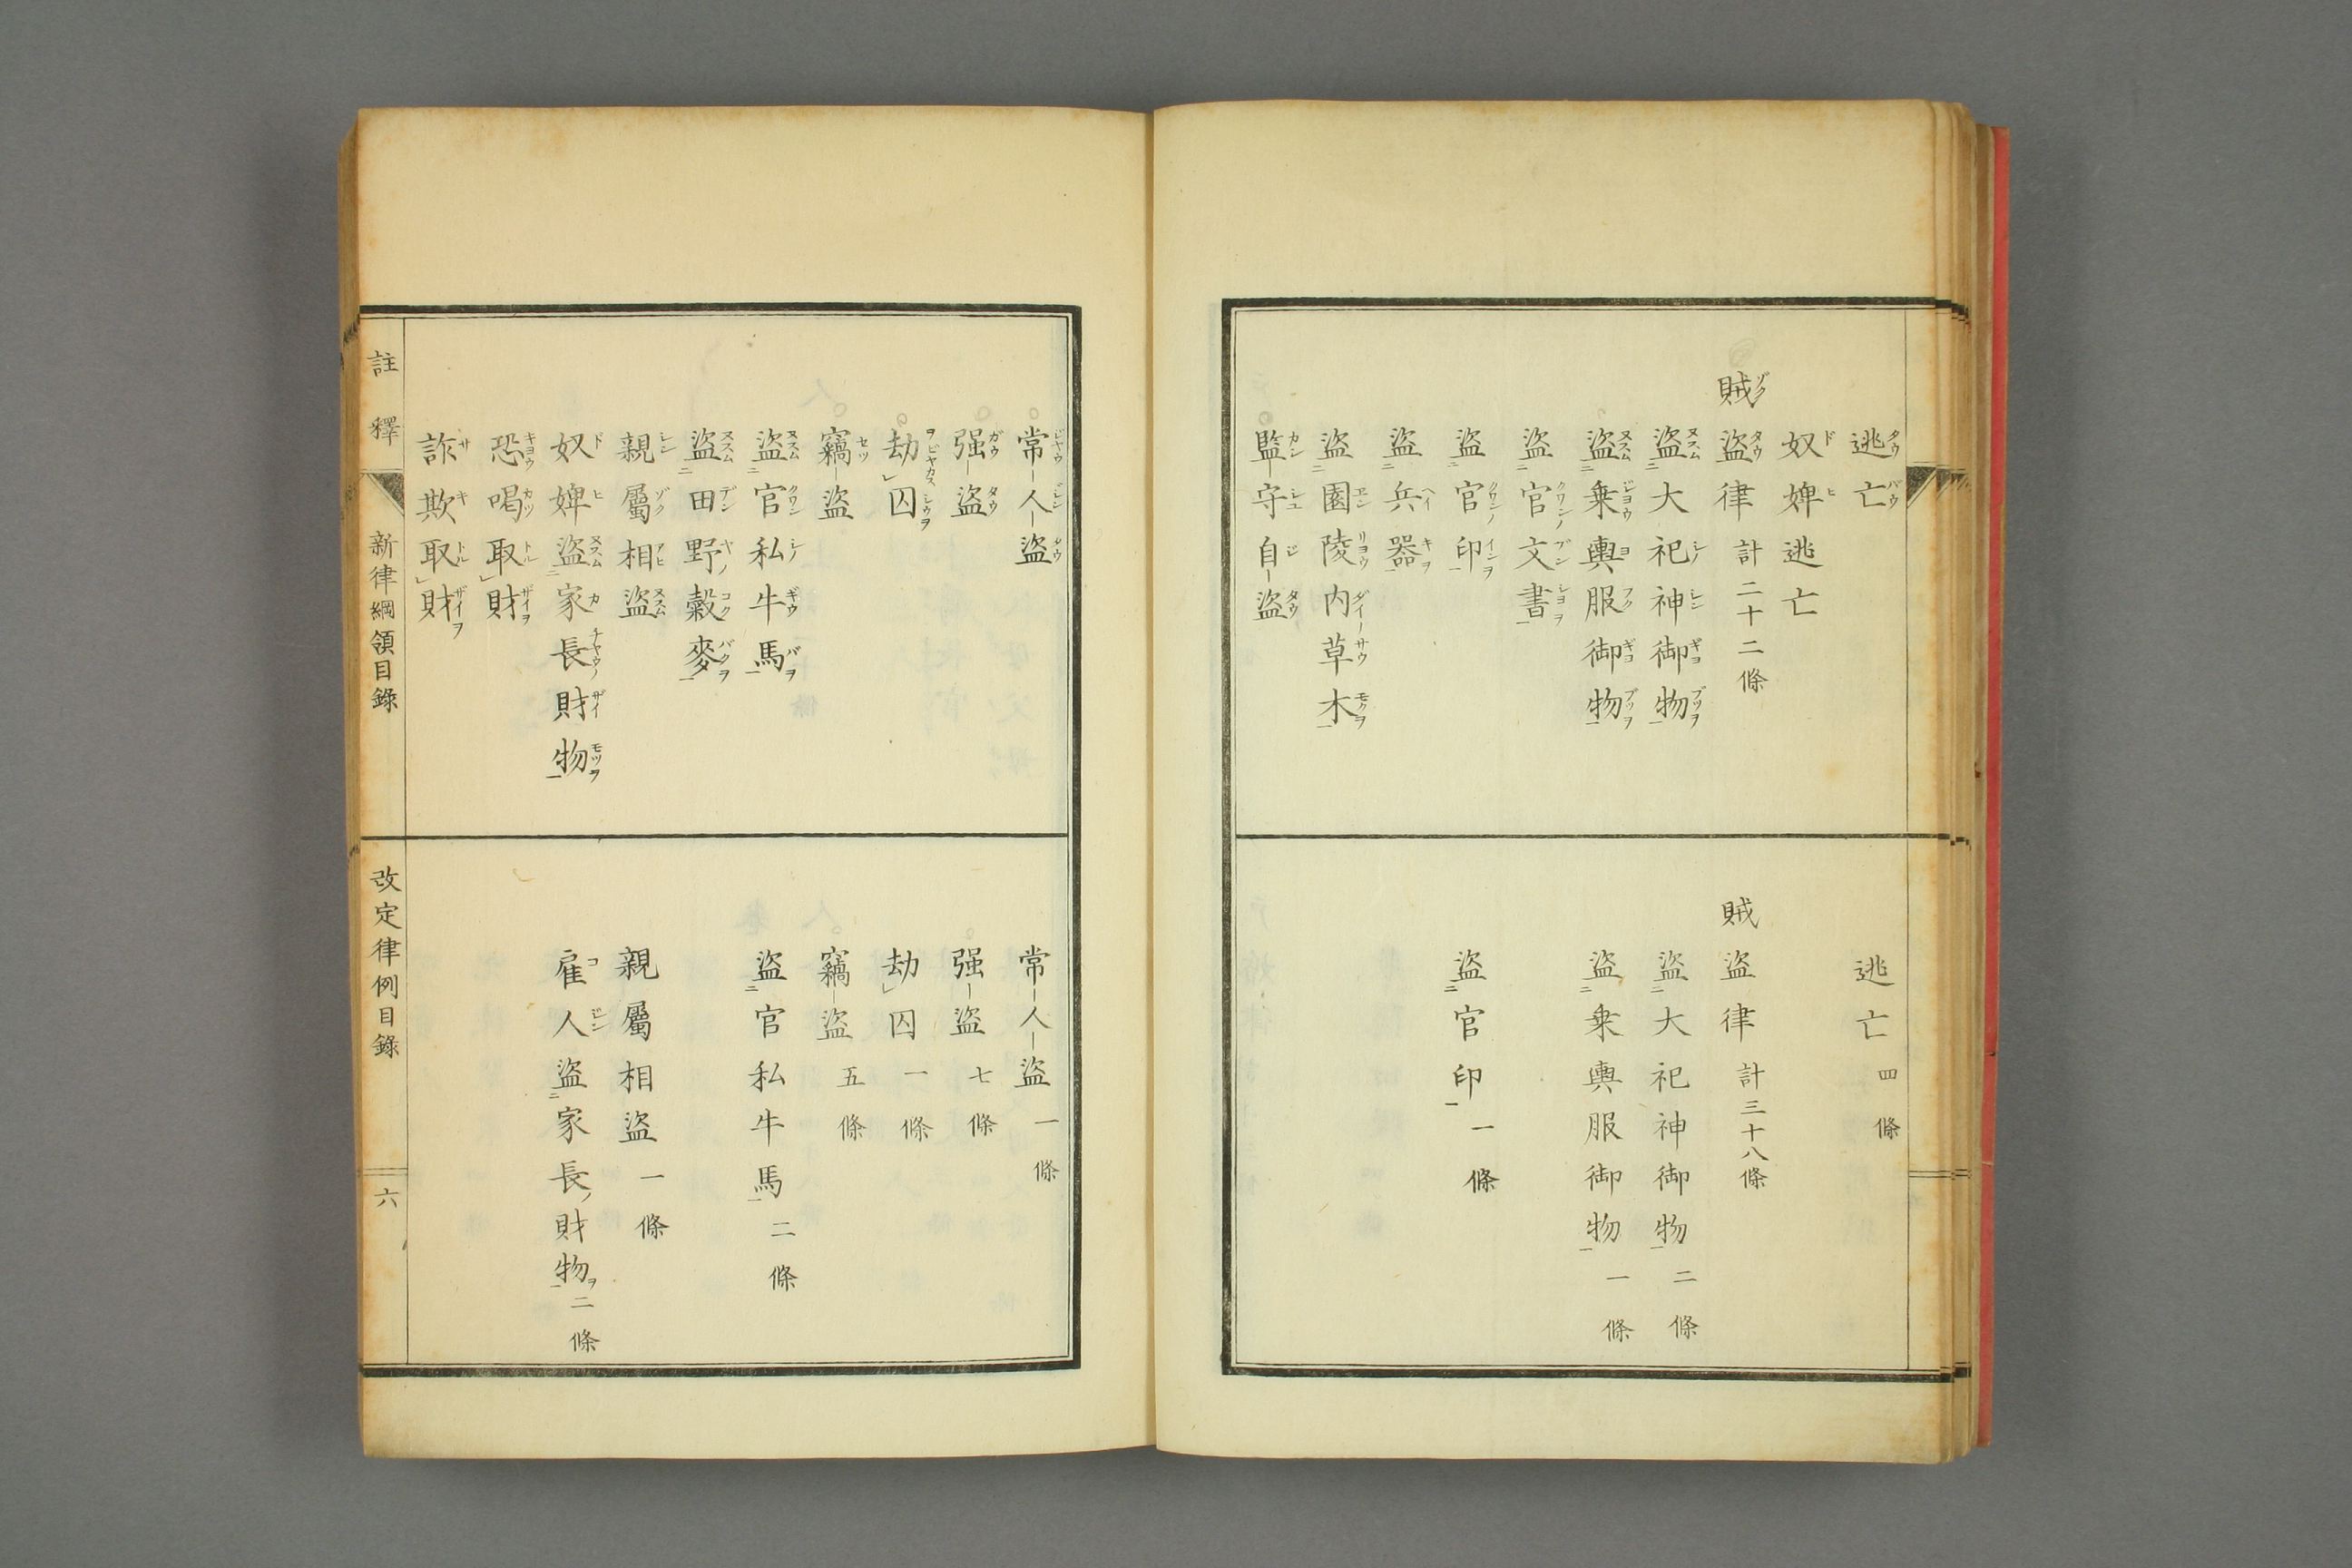 逃亡
奴婢逃亡
賊盜律 計二十二條
盜大祀神御物
盜乘輿服御物
盜官文書
盜官印
盜兵器
盜園陵内草木
監守自盜
逃亡 四條
賊盜律 計三十八條
盜大祀神御物 二條
盜乘輿服御物 一條
盜官印 一條
常人盜
强盜
劫囚
竊盜
盜官私牛馬
盜田野穀麥
親屬相盜
奴婢盜家長財物
恐喝取財
詐欺取財
常人盜 一條
强盜 七條
劫囚 一條
竊盜 五條
盜官私牛馬 二條
親屬相盜 一條
雇人盜家長ノ財物ヲ 二條
註釋 新律綱領目錄 改定律例目錄 六